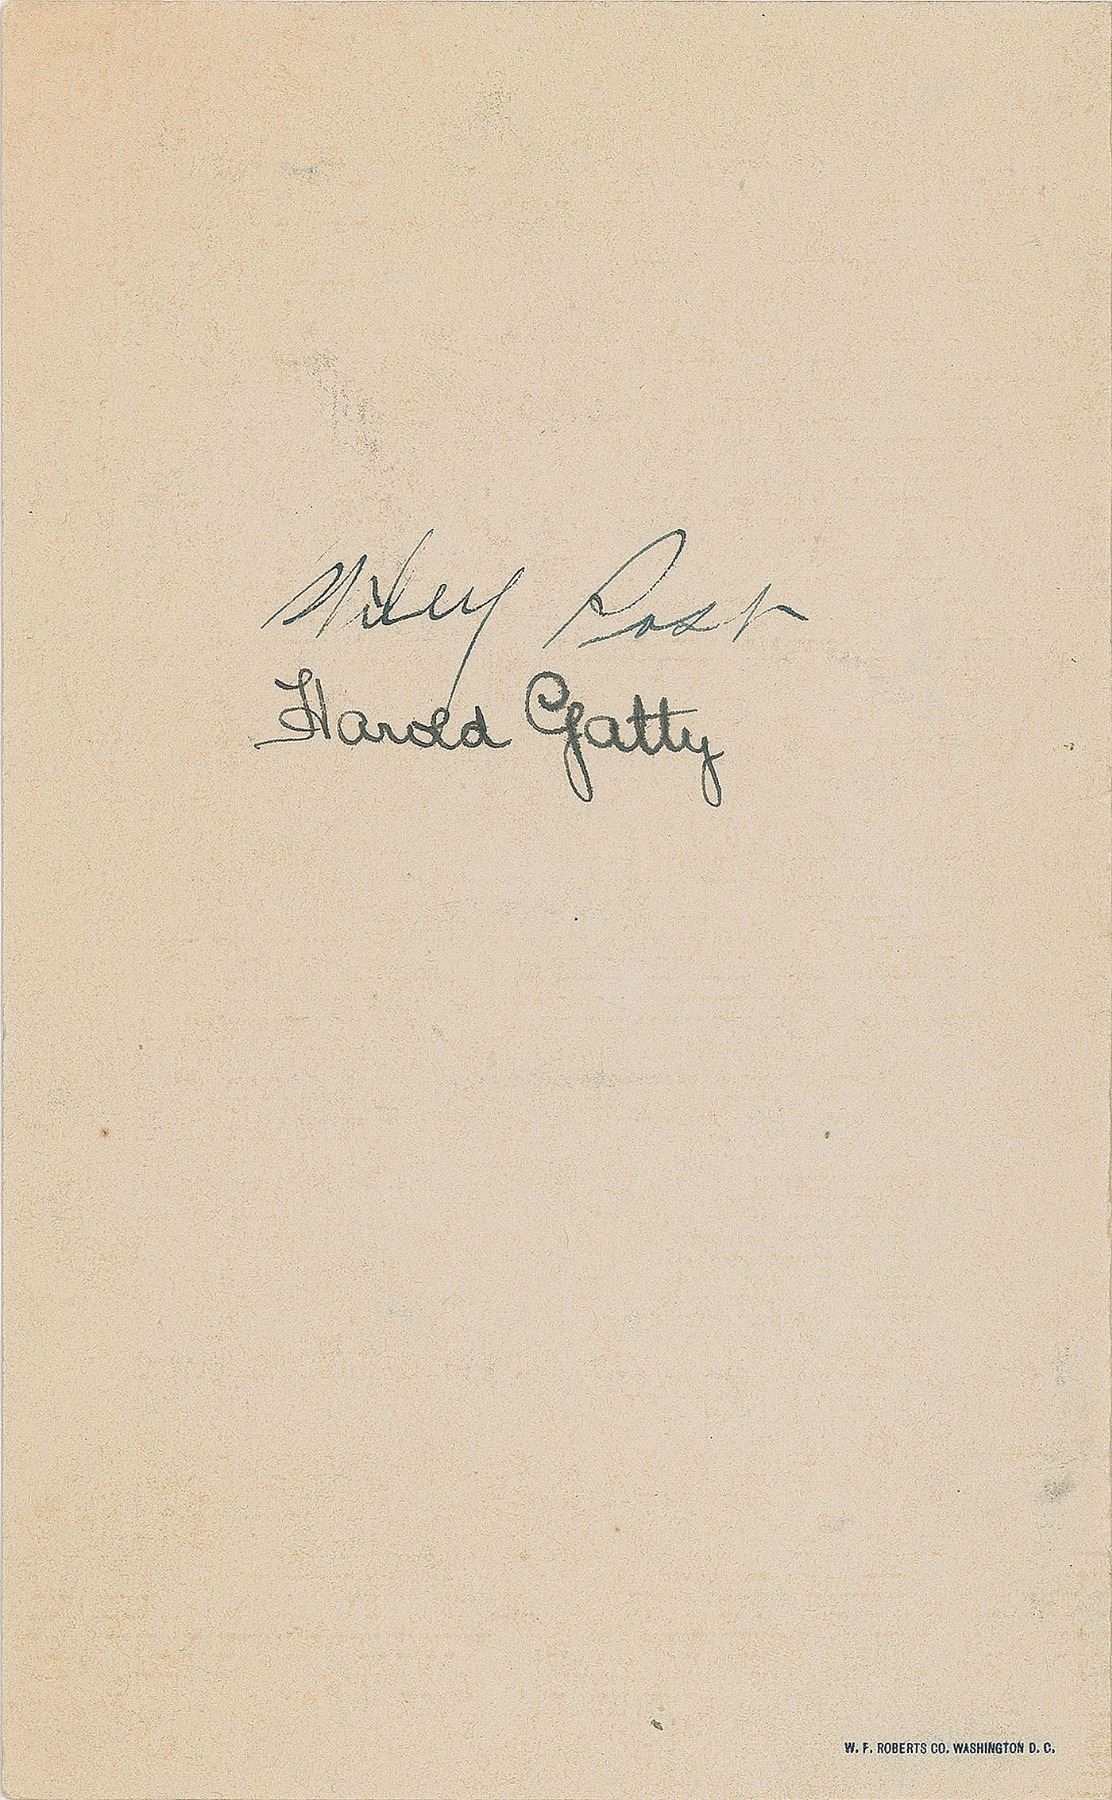 Wiley Post
Harold Gatty
W. F. ROBERTS CO. WASHINGTON D. C.